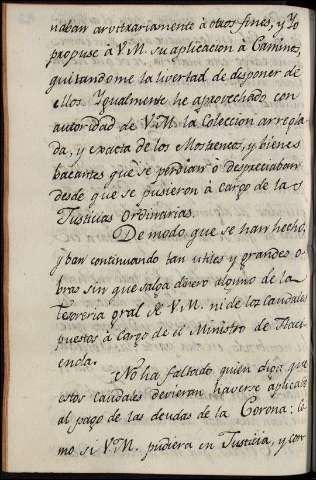 naban arvitrariamente à otros fines, y Yo
propuse à V.M. su aplicacion à Caminos,
quitandome la livertad de disponer de
ellos. Ygualmente he aprovechado con
autoridad de V.M. la Coleccion arregla-
da, y exacta de los Mostrencos, y bienes
bacantes que se perdian ò despreciaban
desde que se pusieron à cargo de las
Justicias Ordinarias.
De modo que se han hecho,
y ban continuando tan utiles y grandes o-
bras sin que salga dinero alguno de la
Tesoreria gral de V.M. ni de los Caudales
puestos à cargo de el Ministro de Haci-
enda.
No ha faltado quien diga que
estos caudales devieran haverse aplicado
al pago de las deudas de la Corona: co-
mo si V.M. pudiera en Justicia, y con-